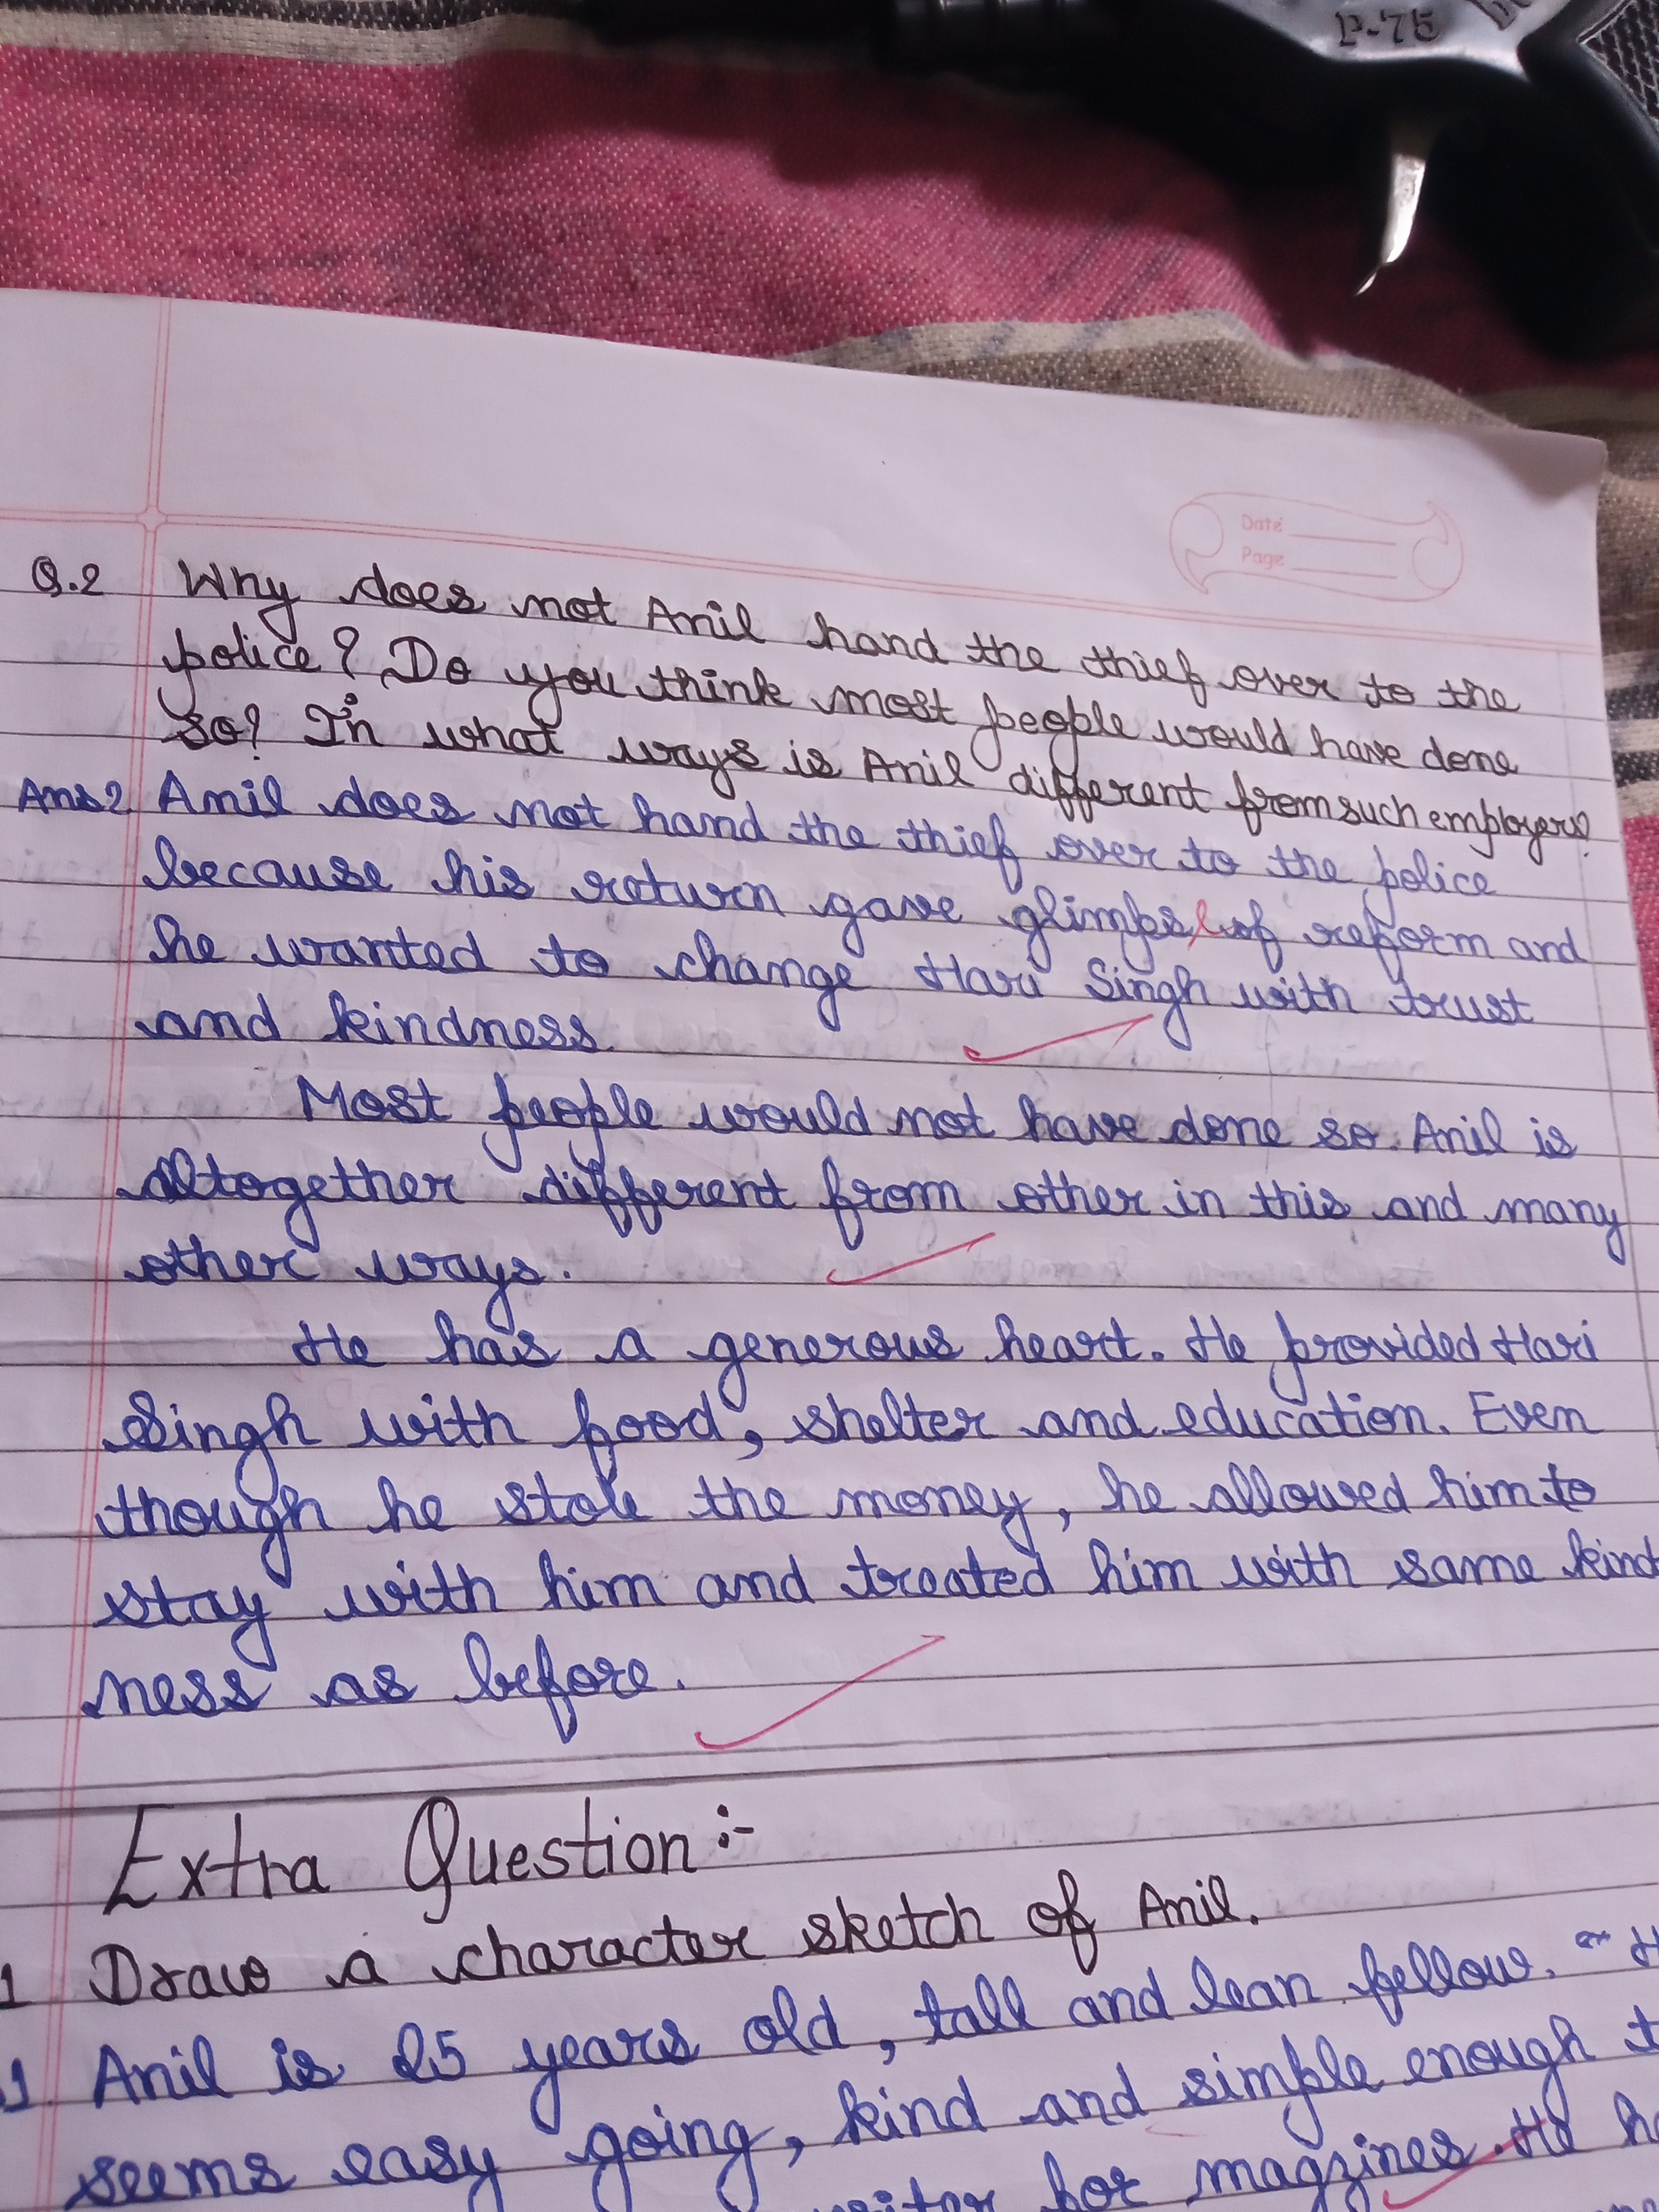 P-75
Date
Page
Q.2 Why does not Anil hand the thief over to the
police? Do you think most people would have done
so? In what ways is Anil different from such employers?
Ans2 Anil does not hand the thief over to the police
because his return gave glimpse of reform and
he wanted to change Hari Singh with trust
and kindness.
Most people would not have done so. Anil is
altogether different from other in this and many
other ways.
He has a generous heart. He provided Hari
Singh with food, shelter and education. Even
though he stole the money, he allowed him to
stay with him and treated him with same kind
ness as before.
Extra Question :-
1 Draw a character sketch of Anil.
1. Anil is 25 years old, tall and lean fellow.
seems easy going, kind and simple enough
for magzines. He